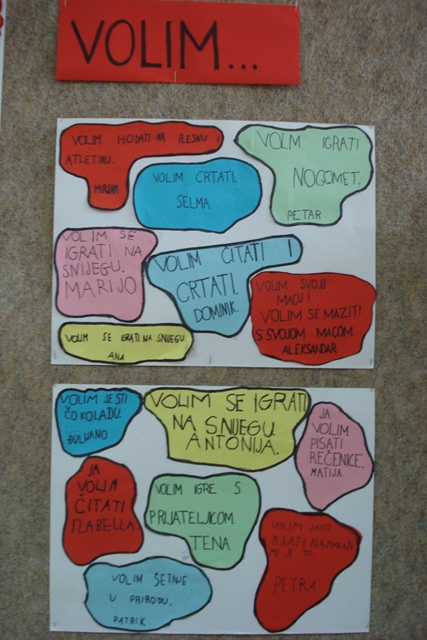 VOLIM...
VOLIM HODATI NA PLESNU I
ATLETIKU.
MIRJAM
VOLIM CRTATI.
SELMA
VOLM IGRATI
NOGOMET.
PETAR
VOLIM SE
IGRATI NA
SNIJEGU.
MARIJO
VOLIM ČITATI I
CRTATI.
DOMINIK.
VOLIM SVOJU
MACU I
VOLIM SE MAZITI
S SVOJOM MACOM.
ALEKSANDAR
VOLIM SE IGRATI NA SNIJEGU.
ANA
VOLIM JESTI
ČOKOLADU.
VOLIM SE IGRATI
NA SNIJEGU.
ANTONIJA.
JA
VOLIM
PISATI
REČENICE.
MATIJA.
JA
VOLIM
ČITATI
VOLIM IGRE S
PRIJATELJICOM.
TENA
VOLIM JAKO
PISATI
MI JE TO.
PETRA
VOLIM ŠETNJE
U PRIRODU.
PATRIK